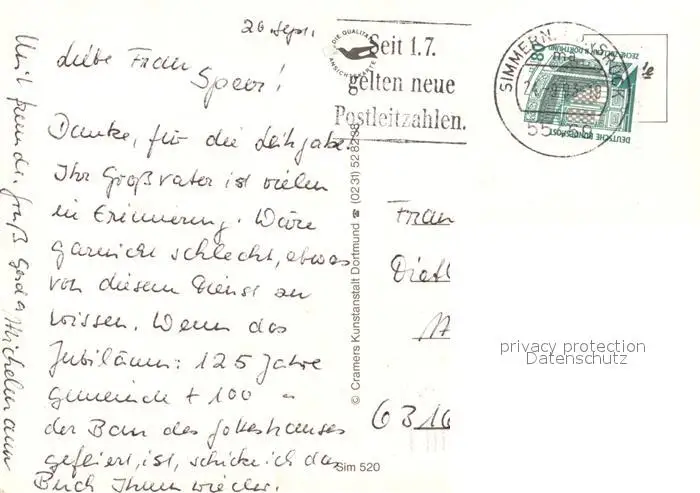 20. Sept.
Liebe Frau
Speer!
Danke, für die Leihgabe.
Ihr Großvater ist vielen
in Erinnerung. Wäre
garnicht schlecht, etwas
von diesem Dienst zu
wissen. Wenn das
Jubiläum: 125 Jahre
Gemeinde + 100 "
der Bau des Gotteshauses
gefeiert, ist, schicke ich das
Buch Ihnen wieder.
Mit freundl. Gruß Gerda Michelmann
DIE QUALITÄTS
ANSICHTSKARTE
Seit 1.7.
gelten neue
Postleitzahlen.
SIMMERN, HUNSRÜCK
ma
55469
ZECHE ZOLLERN II DORTMUND
80
DEUTSCHE BUNDESPOST
© Cramers Kunstanstalt Dortmund ☎ (0231) 528298
Sim 520
Frau
6310
privacy protection
Datenschutz